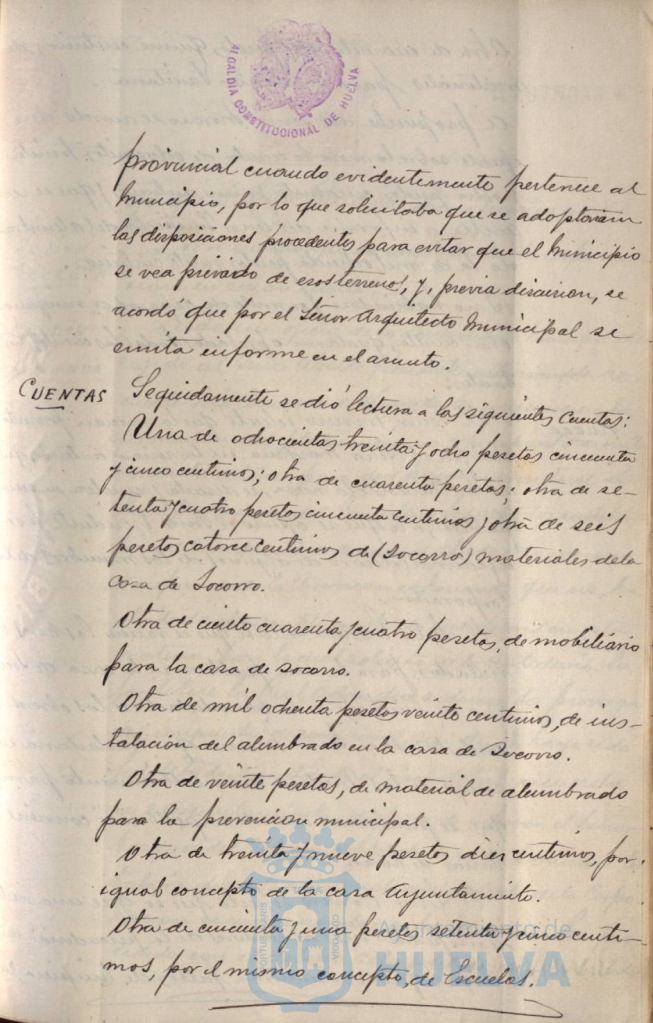 ALCALDÍA CONSTITUCIONAL DE HUELVA
provincial cuando evidentemente pertenece al
Municipio, por lo que solicitaba que se adoptaran
las disposiciones procedentes para evitar que el Municipio
se vea privado de esos terrenos, y, previa discusion, se
acordó que por el Señor Arquitecto Municipal se
emita informe en el asunto.
CUENTAS
Seguidamente se dió lectura a las siguientes Cuentas:
Una de ochocientas treinta y ocho pesetas cincuenta
y cinco centimos; otra de cuarenta pesetas; otra de se-
tenta y cuatro pesetas cincuenta centimos y otra de seis
pesetas catorce centimos de (Socorro) materiales de la
Casa de Socorro.
Otra de ciento cuarenta y cuatro pesetas, de mobiliario
para la casa de socorro.
Otra de mil ochenta pesetas veinte centimos, de ins-
talación del alumbrado en la casa de Socorro.
Otra de veinte pesetas, de material de alumbrado
para la prevencion municipal.
Otra de treinta y nueve pesetas diez centimos, por
igual concepto de la casa Ayuntamiento.
Otra de cincuenta y una pesetas setenta y cinco centi-
mos, por el mismo concepto, de Escuelas.
PORTUS MARIS
ET TERRAE CUSTODIA
Ayuntamiento de
HUELVA